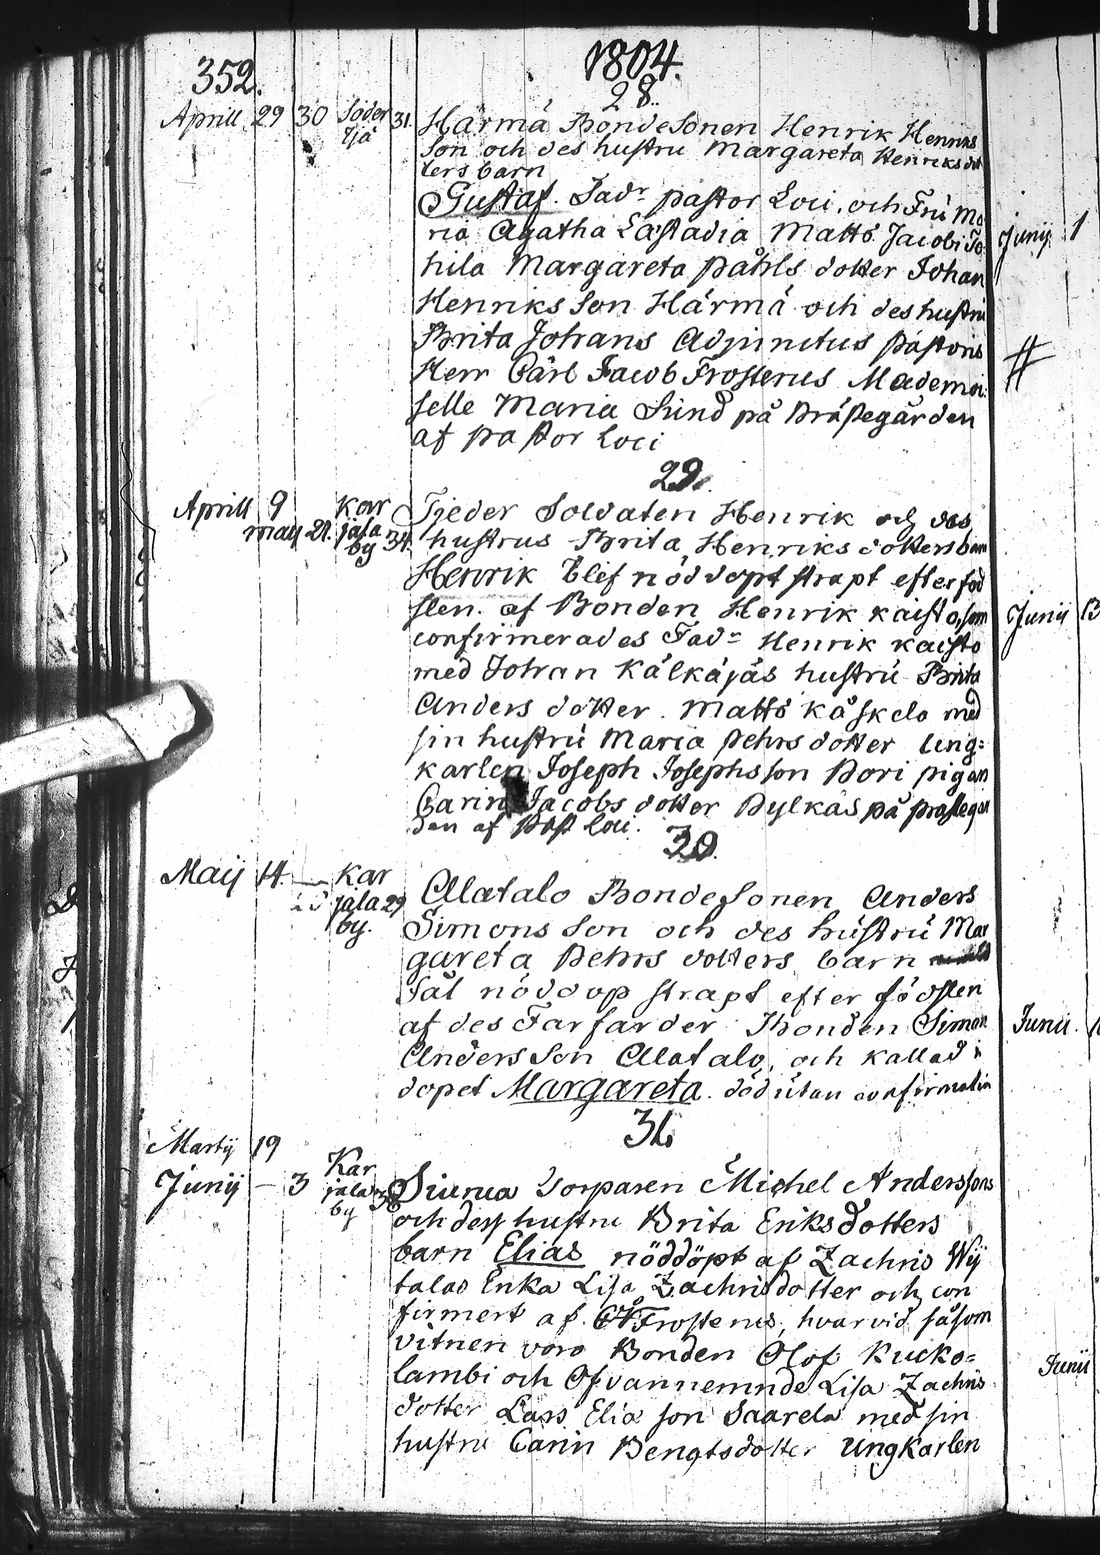 352.
1804.
28.
Aprill 29 30 Söder 31. Härmä BondeSonen Henrik Henriks
Sjä
Son och des hustru Margareta Henriksdot
ters barn
Gustaf. Fadr pastor Loci. och Fru Ma
ria Agatha Lastadia Matts Jacobi To
hila Margareta påhls dotter Johan
Henriks Son Härmä och des hustru
Brita Johans Adjunctus pastoris
Herr Carl Jacob Frosterus Mademoi
selle Maria Sund på Prästegården
af pastor Loci
29.
Aprill 9 Kar Tjeder Soldaten Henrik och des
may 21. jala 34. hustrus Brita Henriks dotters barn
by
Henrik blef nöddopt strapt efter föd
slen. af Bonden Henrik kaisto, som
confirmerades Fadr Henrik kaisto
med Johan Kälkäjäs hustru Brita
Anders dotter. Matts Kåskelo med
sin hustru Maria Pehrs dotter Ung=
karlen Joseph Josephsson Pori pigan
Carin Jacobs dotter Pylkäs på prästegår
den af Past Loci.
30.
Maij 14. Kar
jala 29 Alatalo BondeSonen Anders
by. Simons Son och des hustru Mar
gareta Pehrs dotters barn
Fåt nöddop strapt efter födslen
af des Farfarder Bonden Simon
Anders Son Alatalo, och kallad i
dopet Margareta. död utan confirmation
31.
Martij 19
Junij — 3 Kar
jala 36 Siurua Torparen Michel Anderssons
by och dess hustru Brita Eriksdotters
barn Elias nöddöpt af Zachris Wij
talas Enka Lisa Zachrisdotter och con
firmert af CJFrosterus, hvarvid såsom
vitnen voro Bonden Olof Kucko=
lambi och Ofvannemnde Lisa Zachris
dotter Lars Elia son Saarela med sin
hustru Carin Bengtsdotter Ungkarlen
Junij 1
#
Junij 13
Junii
Junii